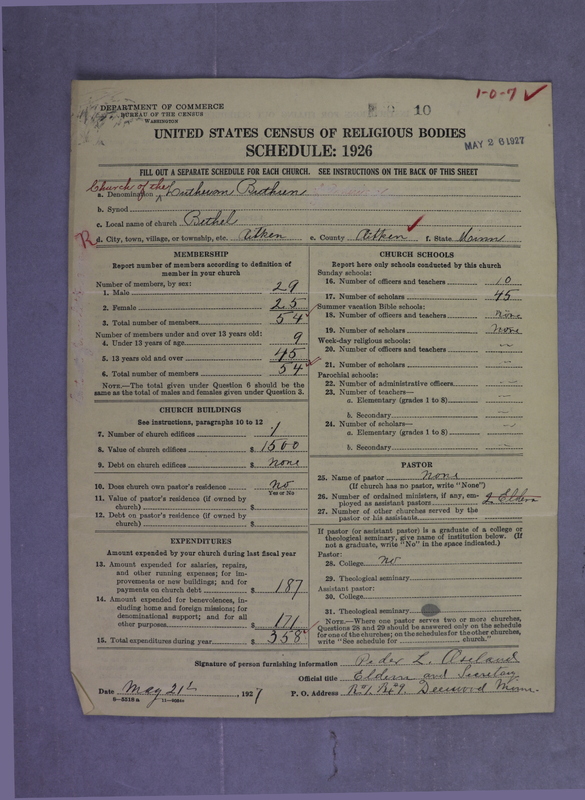 1-0-7 ✓
DEPARTMENT OF COMMERCE
BUREAU OF THE CENSUS
WASHINGTON
10
UNITED STATES CENSUS OF RELIGIOUS BODIES
MAY 26 1927
SCHEDULE: 1926
FILL OUT A SEPARATE SCHEDULE FOR EACH CHURCH. SEE INSTRUCTIONS ON THE BACK OF THIS SHEET
Church of the
a. Denomination Lutheran Brethren
b. Synod
c. Local name of church Bethel
R d. City, town, village, or township, etc. Aitken e. County Aitken f. State Minn
MEMBERSHIP
Report number of members according to definition of
member in your church
Number of members, by sex:
1. Male 29
2. Female 25
3. Total number of members 54
Number of members under and over 13 years old:
4. Under 13 years of age 9
5. 13 years old and over 45
6. Total number of members 54
NOTE.—The total given under Question 6 should be the
same as the total of males and females given under Question 3.
CHURCH BUILDINGS
See instructions, paragraphs 10 to 12
7. Number of church edifices 1
8. Value of church edifices $ 1500
9. Debt on church edifices $ None
10. Does church own pastor's residence? No
Yes or No
11. Value of pastor's residence (if owned by
church) $
12. Debt on pastor's residence (if owned by
church) $
EXPENDITURES
Amount expended by your church during last fiscal year
13. Amount expended for salaries, repairs,
and other running expenses; for im-
provements or new buildings; and for
payments on church debt $ 187
14. Amount expended for benevolences, in-
cluding home and foreign missions; for
denominational support; and for all
other purposes $ 171
15. Total expenditures during year $ 358
CHURCH SCHOOLS
Report here only schools conducted by this church
Sunday schools:
16. Number of officers and teachers 10
17. Number of scholars 45
Summer vacation Bible schools:
18. Number of officers and teachers none
19. Number of scholars none
Week-day religious schools:
20. Number of officers and teachers —
21. Number of scholars —
Parochial schools:
22. Number of administrative officers —
23. Number of teachers—
a. Elementary (grades 1 to 8) —
b. Secondary —
24. Number of scholars—
a. Elementary (grades 1 to 8) —
b. Secondary —
PASTOR
25. Name of pastor None
(If church has no pastor, write "None")
26. Number of ordained ministers, if any, em-
ployed as assistant pastors 2 Elders
27. Number of other churches served by the
pastor or his assistants
If pastor (or assistant pastor) is a graduate of a college or
theological seminary, give name of institution below. (If
not a graduate, write "No" in the space indicated.)
Pastor:
28. College No
29. Theological seminary
Assistant pastor:
30. College
31. Theological seminary
NOTE.—Where one pastor serves two or more churches,
Questions 28 and 29 should be answered only on the schedule
for one of the churches; on the schedules for the other churches,
write "See schedule for church."
Signature of person furnishing information Peder L.
Official title Eldern and Secretary
Date May 21st, 1927 P. O. Address R#1. Deerwood Minn.
8—5518 a